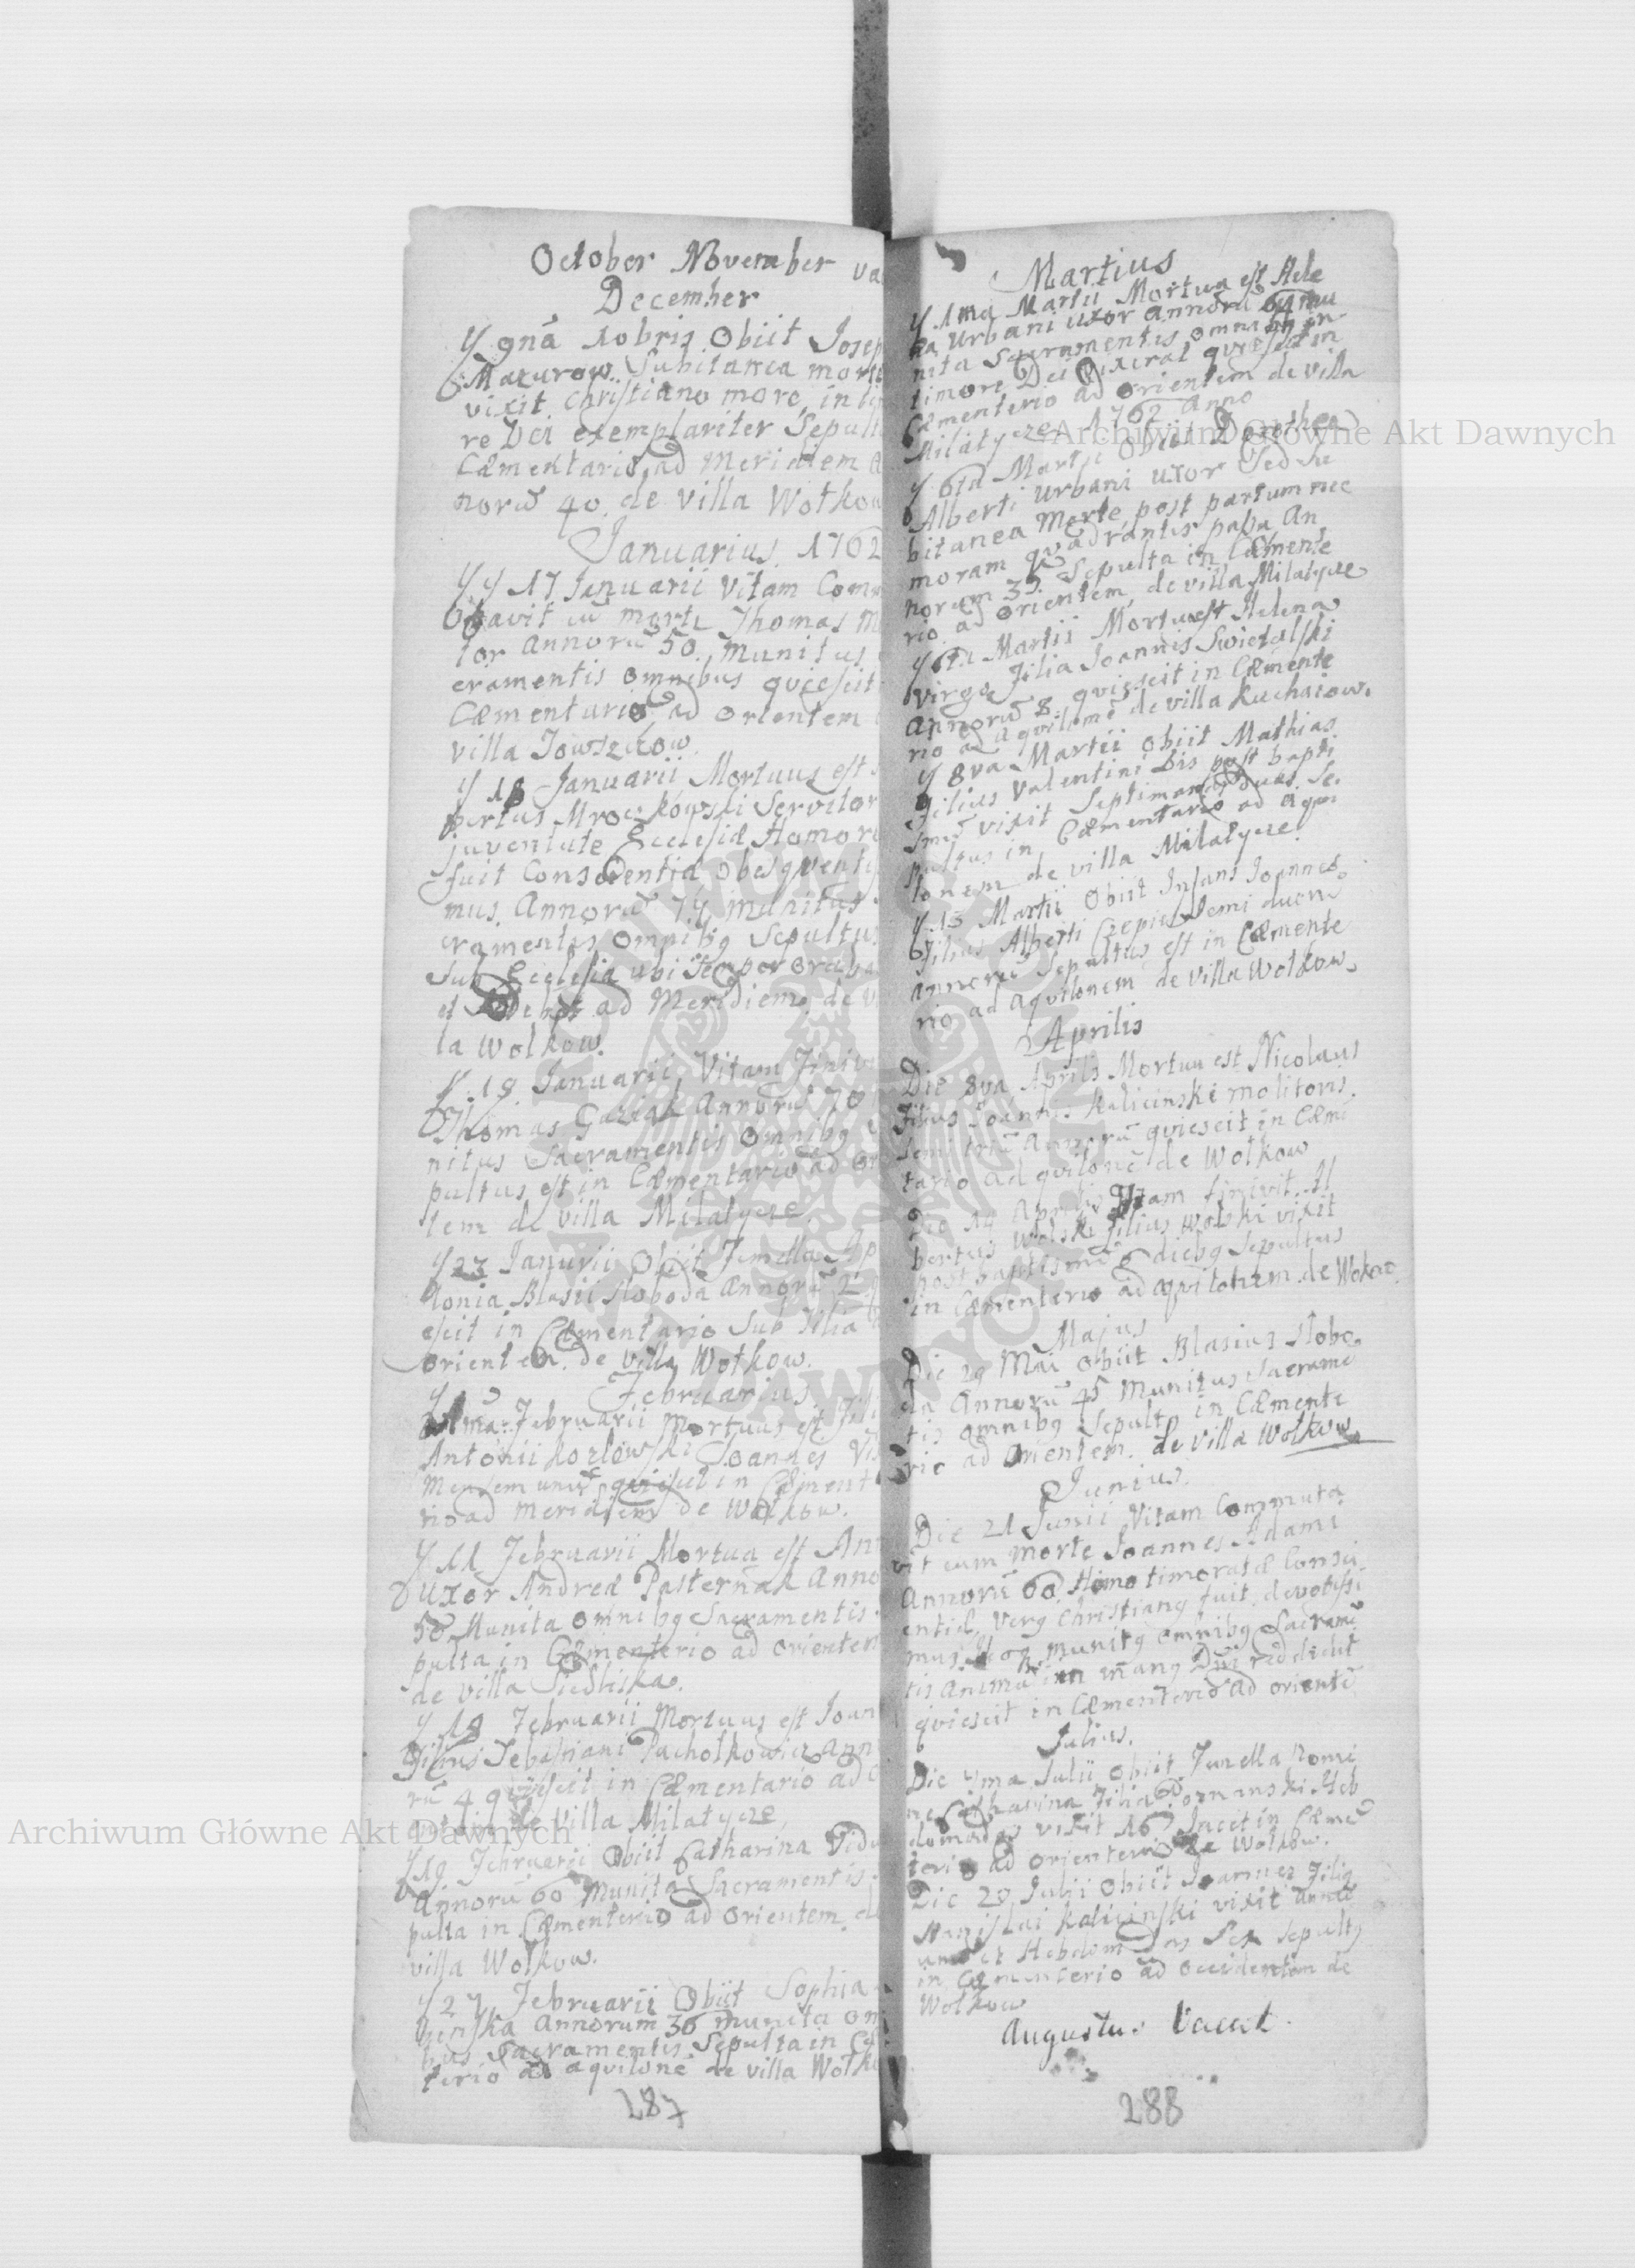 October November va
December
Y 9nã 10bris Obiit Josep
Mazurow. Subitanea morte
vixit Christiano more, in ti
re Dei exemplariter Sepult
Cæmentario, ad Meridiem A
norũ 40. de villa Wołkow
Januarius. 1762
Y 17 Januarii Vitam Comm
utavit cũ morte Thomas M
tor Annorũ 50. Munitus
cramentis omnibus qviescit
Cæmentario ad orientem
villa
Y 18 Januarii Mortuus est
pertus Mroczkowski Servitor
juventute Ecclesiæ Homo
fuit Conscientia
mus. Annorũ 74 munitus
cramentis omnibq Sepultus
Sub Ecclesia ubi semper oraba
et ad Meridiem, de v
la Wolkow.
Y 19. Januarii Vitam Finivi
Thomas Guziak Annorũ 70
nitus Sacramentis Omnibq
pultus est in Cæmentario ad or
tem de villa Milatycze.
Y 23 Januarii Obiit Femella Ap
lonia Blasii Słoboda Annorũ 2
escit in Cæmentario Sub
orientem. de villa Wołkow.
Februarius
1ma Februarii Mortuus est Fili
Antonii Kozłowski Joannes Vi
Mensem unũ qviescit in Cæment
rio ad Meridiem de Wołkow.
Y 11 Februarii Mortua est Ann
Uxor Andreæ Pasternak Anno
50 Munita omnibq Sacramentis.
pulta in Cæmenterio ad orientem
de villa Siedliska.
Y 18 Februarii Mortuus est Joan
Filius Sebastiani Pachołkowicz Ann
rũ 4 qviescit in Cæmentario ad
de villa Milatycze
Y 19. Februarii Obiit Catharina Vidu
Annorũ 60 Munita Sacramentis.
pulta in Cæmenterio ad orientem. de
villa Wołkow.
Y 27 Februarii Obiit Sophia
Annorum 36 munita om
bus Sacramentis. Sepulta in Cæ
terio ad aquilonẽ de villa Wołk
287
Martius
Y 1ma Martii Mortua est Hele
na Urbani uxor Annorũ 64 mu
nita Sacramentis omnibq in
timore Dei vixerat qviescit in
Cæmenterio ad orientem de villa
Milatycze 1762 Anno
Y 6ta Martii Obiit Dorothea
Alberti Urbani uxor Sed Su
bitanea Morte, post partum nec
moram qvadrantis An
norum 35. Sepulta in Cæmente
rio ad orientem, de villa Milatycze
Y 6ta Martii Mortua est Helena
virgo Filia Joannis Swietalski
Annorũ 8. qviescit in Cæmente
rio ad Aqvilonẽ de villa Kuhaiow.
Y 8va Martii obiit Mathias
Filius Valentini Bis post bapti
smũ vixit Septimanas duas. Se.
pultus in Cæmentario ad Aqui
lonem de villa Milatycze.
Y 13 Martii Obiit Infans Joannes
Filius Alberti Czepiel Semi duorũ
annorũ Sepultus est in Cæmente
rio ad Aqvilonem de villa Wołkow.
Aprilis
Die 8va Aprilis Mortuu est Nicolaus
Filius Joannis Kalicinski Molitoris.
Semi triũ Annorũ qviescit in Cæmẽ
tario ad qvilonẽ de Wołkow
Die 14 Aprilis Vitam finivit Al
bertus Wolski filius Wolski vixit
post baptismũ 6 diebq Sepultus
in Cæmenterio ad aqvilonem de Wołkow
Majus
Die 29 Mai obiit Blasius Słobo
da Annorũ 45 Munitus Sacramẽ
tis omnibq Sepultq in Cæmente
rio ad Orientem. de villa Wołkow
Junius.
Die 21 Junii Vitam Commuta
vit cum Morte Joannes Adami
Annorũ 60. Homo timoratæ Consci
entiæ, Verq Christianq fuit, devotissi
mus. Munitq omnibq Sacramẽ
tis Animã in manq Dñi reddidit
qviescit in Cæmenterio ad orientẽ
Julius.
Die Julii Obiit Femella nomi
ne Catharina Filia Poznanski Heb
domadas vixit 16. Jacet in Cæmẽ
terio ad orientem de Wołkow.
Die 20 Julii Obiit Joannes Filiq
Stanislai Kalicinski vixit annũ
unũ et Hebdomadas Sex Sepultq
in Cæmenterio ad occidentem de
Wołkow
Augustus Vacat.
288
Archiwum Główne Akt Dawnych
Archiwum Główne Akt Dawnych